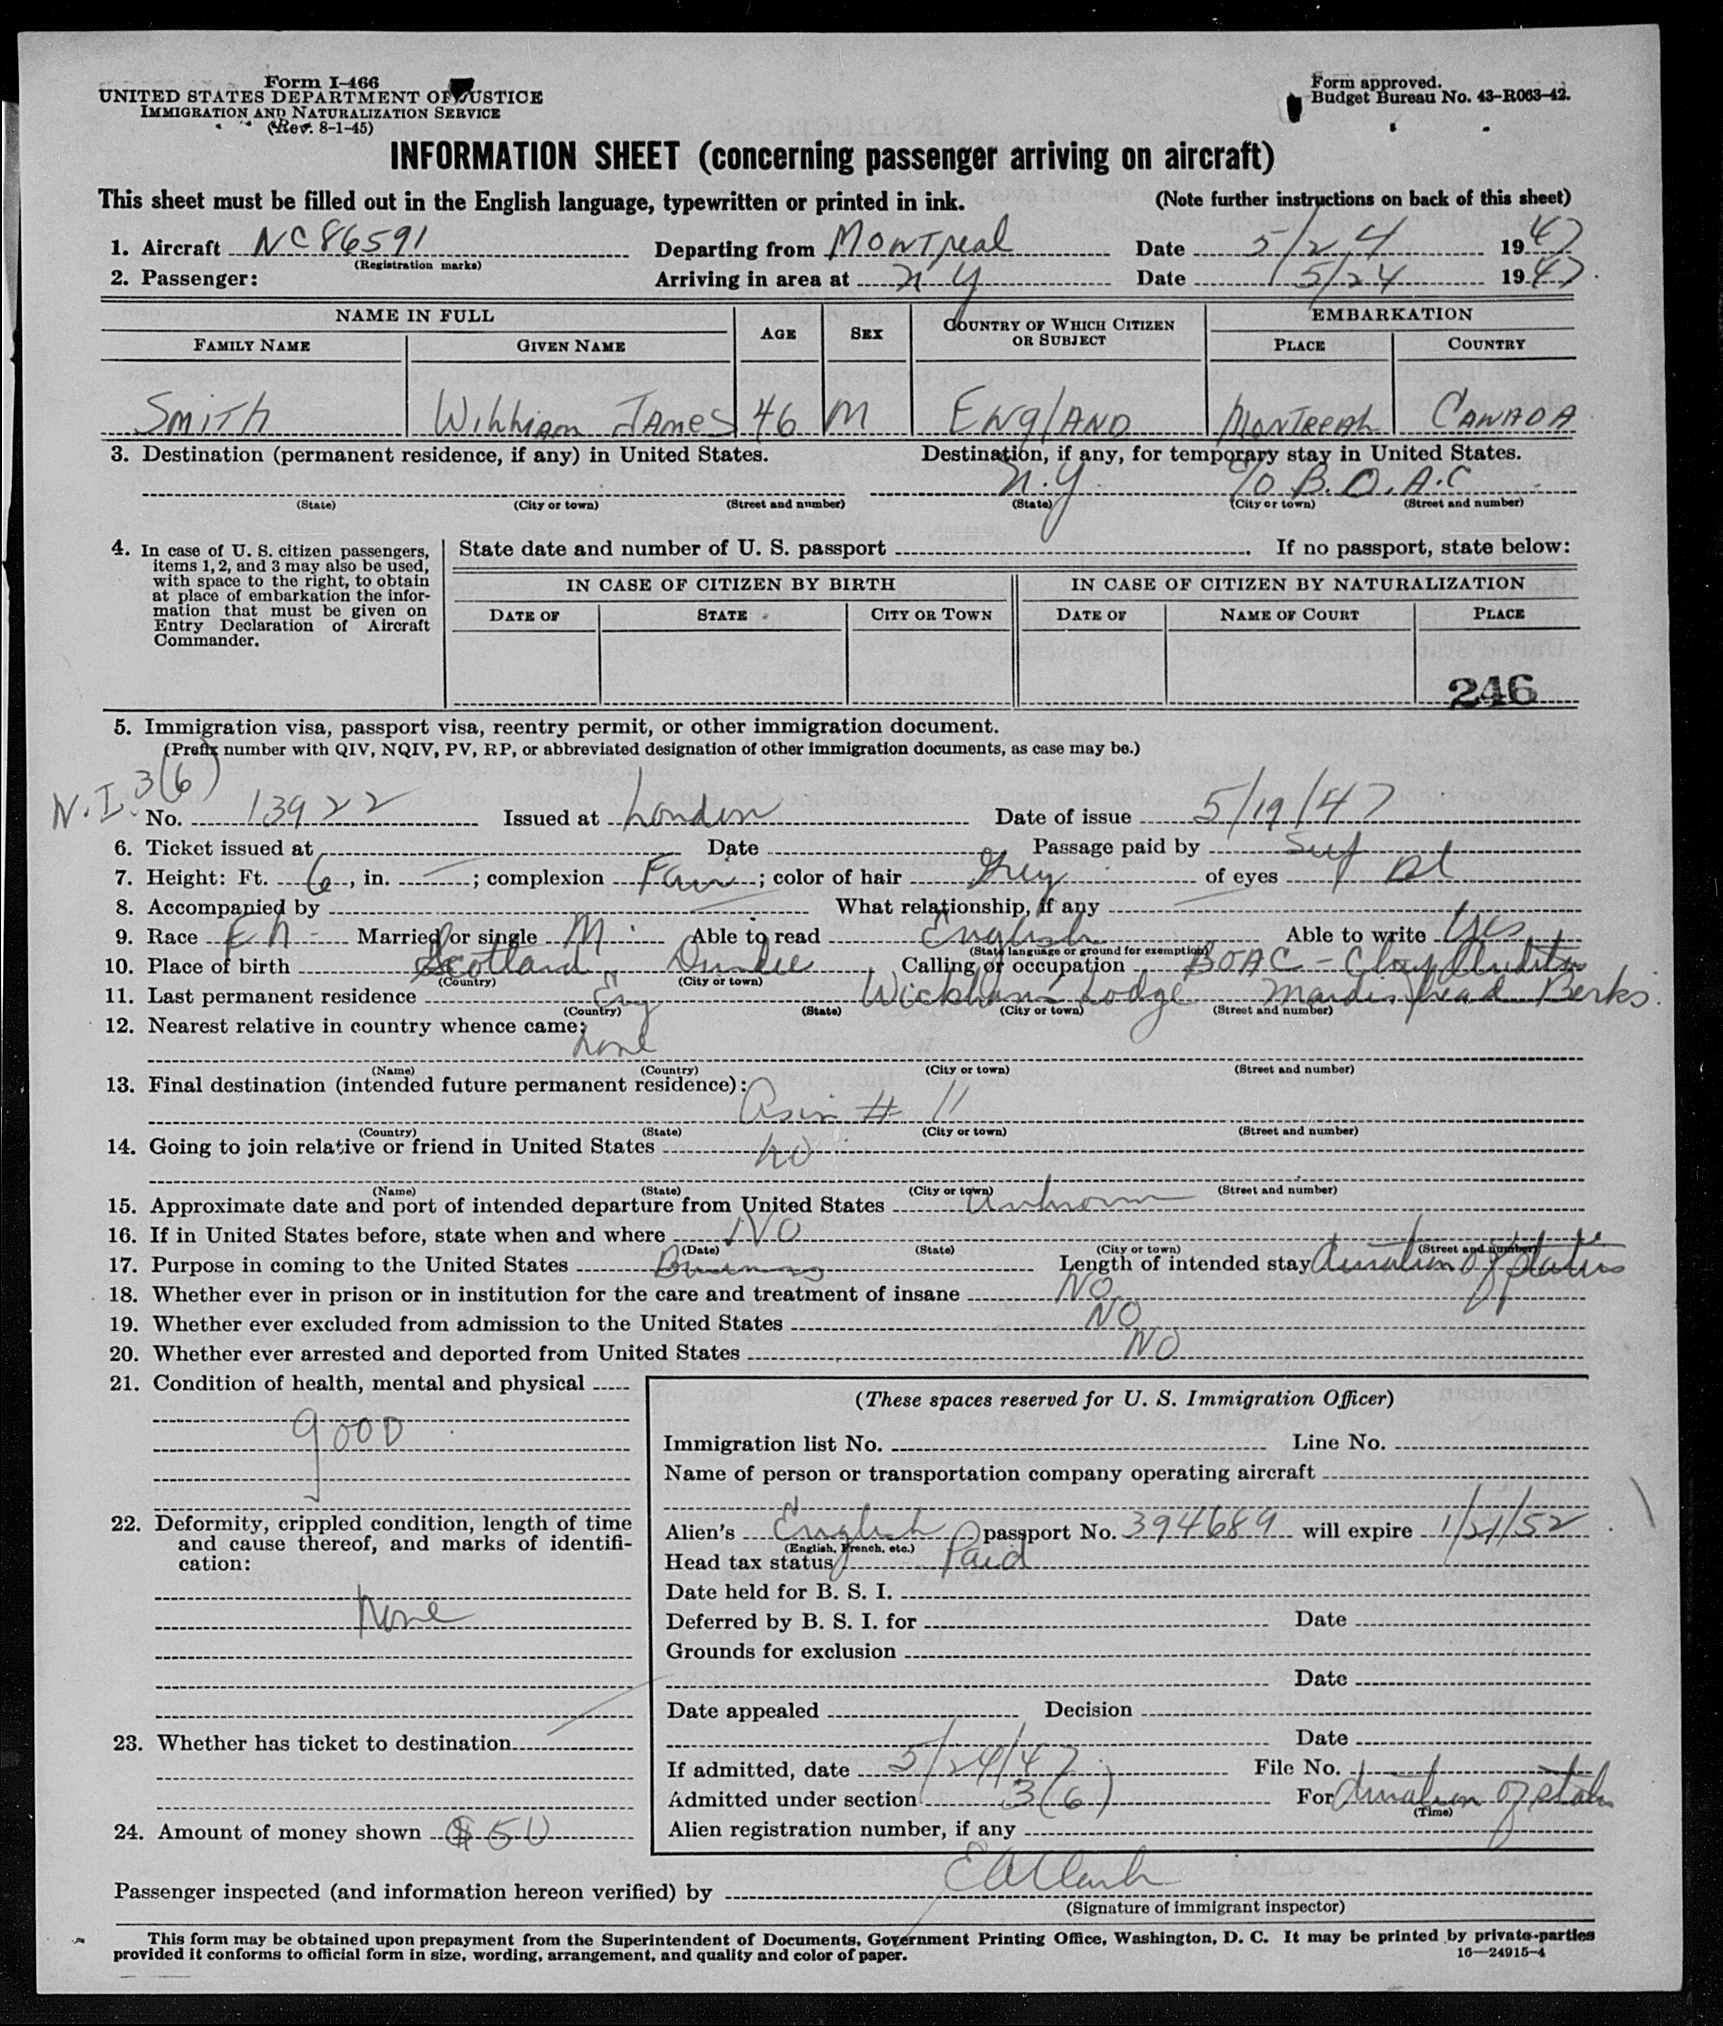 Form I-466
UNITED STATES DEPARTMENT OF JUSTICE
IMMIGRATION AND NATURALIZATION SERVICE
(Rev. 8-1-45)
Form approved.
Budget Bureau No. 43-R063-42.
INFORMATION SHEET (concerning passenger arriving on aircraft)
This sheet must be filled out in the English language, typewritten or printed in ink. (Note further instructions on back of this sheet)
1. Aircraft NC86591 Departing from Montreal Date 5/24 1947
(Registration marks)
2. Passenger: Arriving in area at N Y Date 5/24 1947.
NAME IN FULL AGE SEX COUNTRY OF WHICH CITIZEN OR SUBJECT EMBARKATION
FAMILY NAME GIVEN NAME PLACE COUNTRY
Smith William James 46 M England Montreal Canada
3. Destination (permanent residence, if any) in United States. Destination, if any, for temporary stay in United States.
N.Y. c/o B.O.A.C
(State) (City or town) (Street and number) (State) (City or town) (Street and number)
4. In case of U. S. citizen passengers, items 1, 2, and 3 may also be used, with space to the right, to obtain at place of embarkation the information that must be given on Entry Declaration of Aircraft Commander.
State date and number of U. S. passport. If no passport, state below:
IN CASE OF CITIZEN BY BIRTH IN CASE OF CITIZEN BY NATURALIZATION
DATE OF STATE CITY OR TOWN DATE OF NAME OF COURT PLACE
246
5. Immigration visa, passport visa, reentry permit, or other immigration document.
(Prefix number with QIV, NQIV, PV, RP, or abbreviated designation of other immigration documents, as case may be.)
N.I. 3(6)
No. 13922 Issued at London Date of issue 5/19/47
6. Ticket issued at Date Passage paid by Self
7. Height: Ft. 6, in. —; complexion Fair; color of hair Grey of eyes Bl
8. Accompanied by — What relationship, if any —
9. Race En Married or single M Able to read English Able to write Yes
(State language or ground for exemption)
10. Place of birth Scotland Dundee Calling or occupation BOAC -
(Country) (City or town)
11. Last permanent residence Eng Wickham Lodge Maidenhead Berks.
(Country) (State) (City or town) (Street and number)
12. Nearest relative in country whence came:
none
(Name) (Country) (City or town) (Street and number)
13. Final destination (intended future permanent residence):
as in # 11
(Country) (State) (City or town) (Street and number)
14. Going to join relative or friend in United States no
(Name) (State) (City or town) (Street and number)
15. Approximate date and port of intended departure from United States unknown
16. If in United States before, state when and where NO
(Date) (State) (City or town) (Street and number)
17. Purpose in coming to the United States Business Length of intended stay duration of status
18. Whether ever in prison or in institution for the care and treatment of insane NO
19. Whether ever excluded from admission to the United States NO
20. Whether ever arrested and deported from United States NO
21. Condition of health, mental and physical
good
22. Deformity, crippled condition, length of time and cause thereof, and marks of identification:
None
23. Whether has ticket to destination
24. Amount of money shown $50
(These spaces reserved for U. S. Immigration Officer)
Immigration list No. Line No.
Name of person or transportation company operating aircraft
Alien's English passport No. 394689 will expire 1/21/52
(English, French, etc.)
Head tax status Paid
Date held for B. S. I.
Deferred by B. S. I. for Date
Grounds for exclusion
Date
Date appealed Decision
Date
If admitted, date 5/24/47 File No.
Admitted under section 3(6) For duration of status
(Time)
Alien registration number, if any
Passenger inspected (and information hereon verified) by
(Signature of immigrant inspector)
This form may be obtained upon prepayment from the Superintendent of Documents, Government Printing Office, Washington, D. C. It may be printed by private parties
provided it conforms to official form in size, wording, arrangement, and quality and color of paper. 16—24915-4